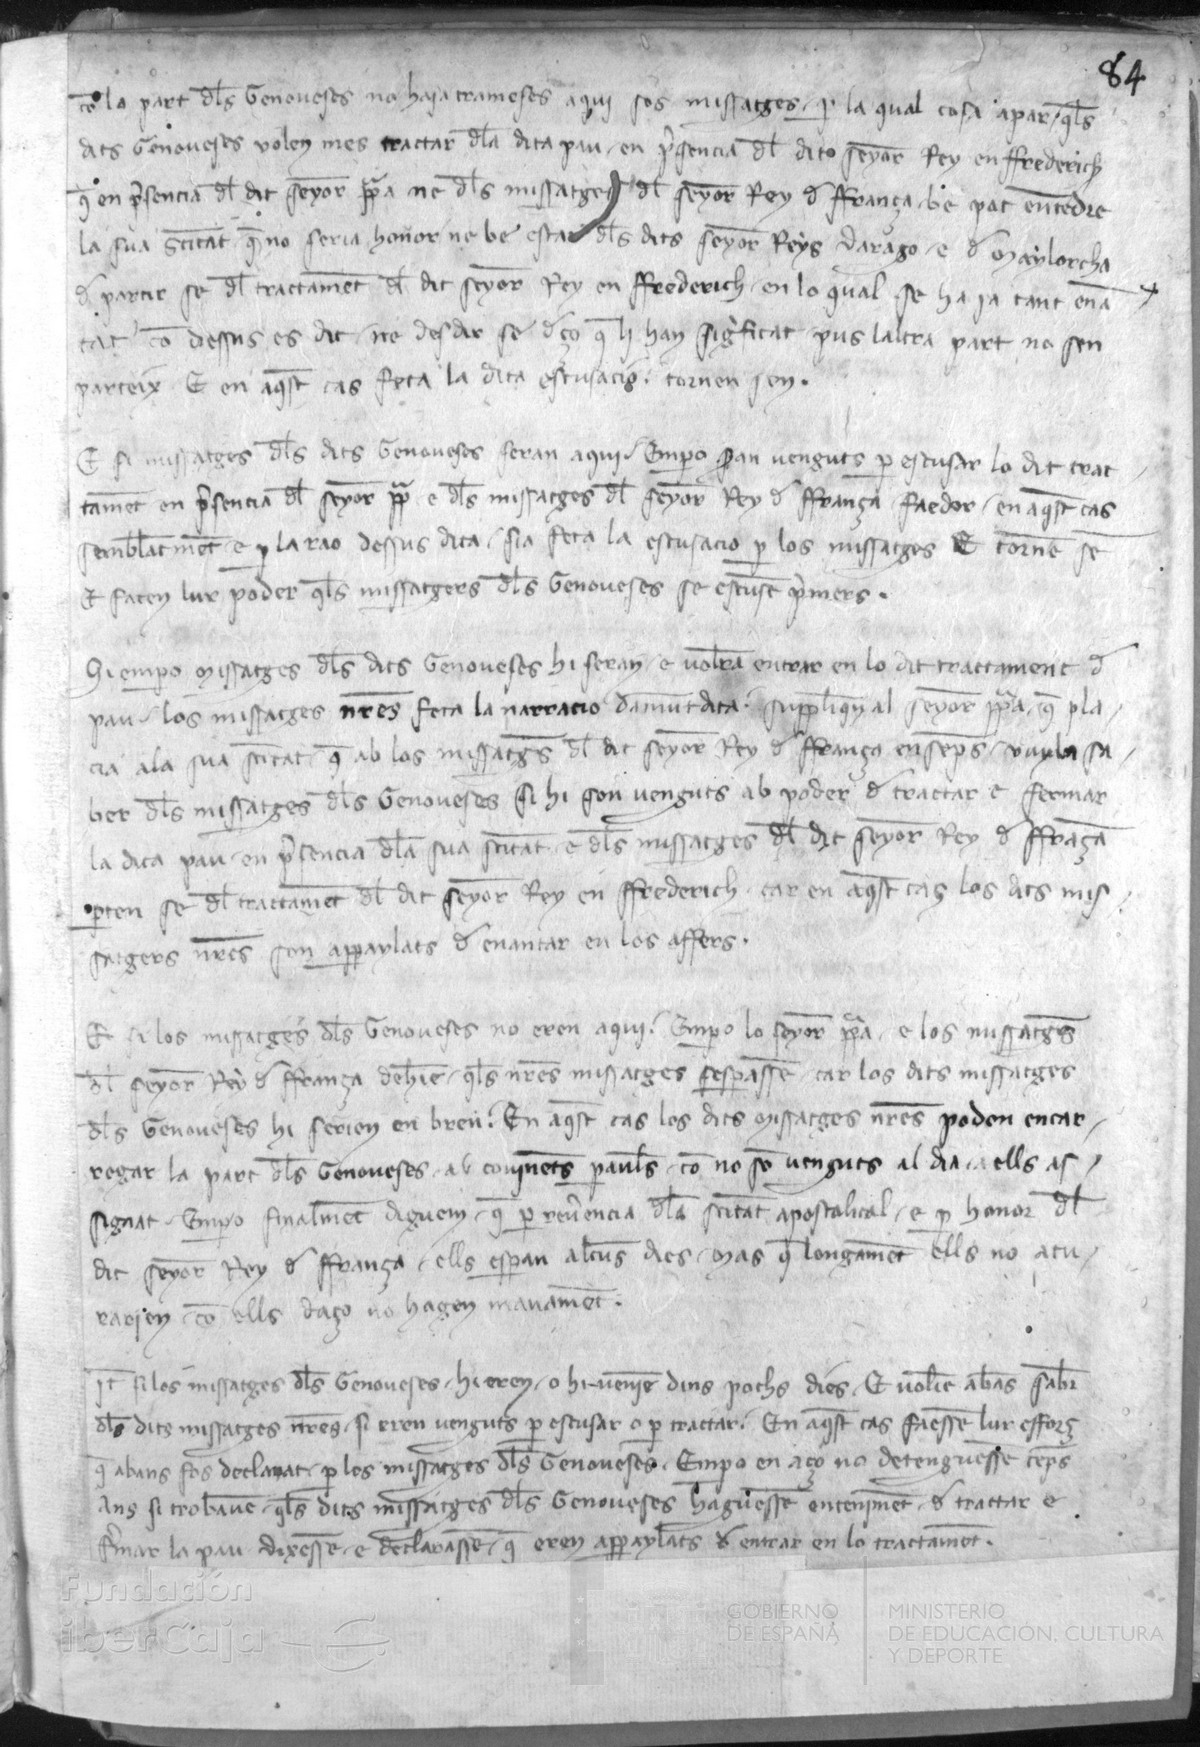 84
co la part dls Genoueses no haja trameses aqui sos missatges p la qual cosa apar qls
dits Genoueses volen mes tractar dla dita pau en psencia dl dito seyor Rey en ffrederich
q en psencia dl dit seyor ppa ne dls missatges dl seyor Rey d ffrança be pot entedre
la sua sctitat q no seria honor ne be estar dls dits seyor Reys darago e d Maylorcha
d partir se dl tractamet dl dit seyor Rey en ffrederich en lo qual se ha ja tant ena
tat co dessus es dit ne desdir se dço q li han sigficat pus laltra part no sen
parteix E en aqst cas feta la dita escusacio tornen sen.
E si missatges dls dits Genoueses seran aqui Empo san venguts p escusar lo dit trac
tamet en psencia dl seyor pp e dls missatges dl seyor Rey d ffrança faedor en aqst cas
semblatmet e p la rao dessus dita sia feta la escusacio p los missatges E torne se
E facen lur poder qls missatgers dls Genoueses se escuset pmers.
Si empo missatges dls dits Genoueses hi seran e volra entrar en lo dit tractament d
pau los missatges nres feta la narracio damutdita suppliqn al seyor ppa q pla
cia ala sua sctitat q ab los missatgs dl dit seyor Rey d ffrança ensemps vuyla sa
ber dls missatges dls Genoueses si hi son venguts ab poder d tractar e fermar
la dita pau en psencia dla sua sctitat e dls missatges dl dit seyor Rey d ffraça
pten se dl tractamet dl dit seyor Rey en ffrederich car en aqst cas los dits mis
satgers nres son appaylats d enantar en los affers.
E si los missatges dls Genoueses no eren aqui Empo lo seyor ppa e los missatges
dl seyor Rey d ffrança dehie qls nres missatges sesperasse car los dits missatges
dls Genoueses hi serien en breu En aqst cas los dits missatges nres poden encar
regar la part dls Genoueses ab couinets paules co no so venguts al dia a ells as
signat Empo finalmet diguen q p reuencia dla sctitat apostolical e p honor dl
dit seyor Rey d ffrança ells esperan alcus dies mas q longamet ells no atu
rarien co ells daço no hagen manamet.
It si los missatges dls Genoueses hi eren o hi venie dins pochs dies E volie abas sabr
dls dits missatges nres si eren venguts p escusar o p tractar En aqst cas faesse lur esforç
q abans fos declarat p los missatges dls Genoueses Empo en aço no detenguesse teps
Ans si trobaue qls dits missatges dls Genoueses haguesse enteniment d tractar e
fmar la pau dixesse e declarasse q eren appaylats d entrar en lo tractamet.
Fundación
iberCaja
GOBIERNO
DE ESPAÑA
MINISTERIO
DE EDUCACIÓN, CULTURA
Y DEPORTE